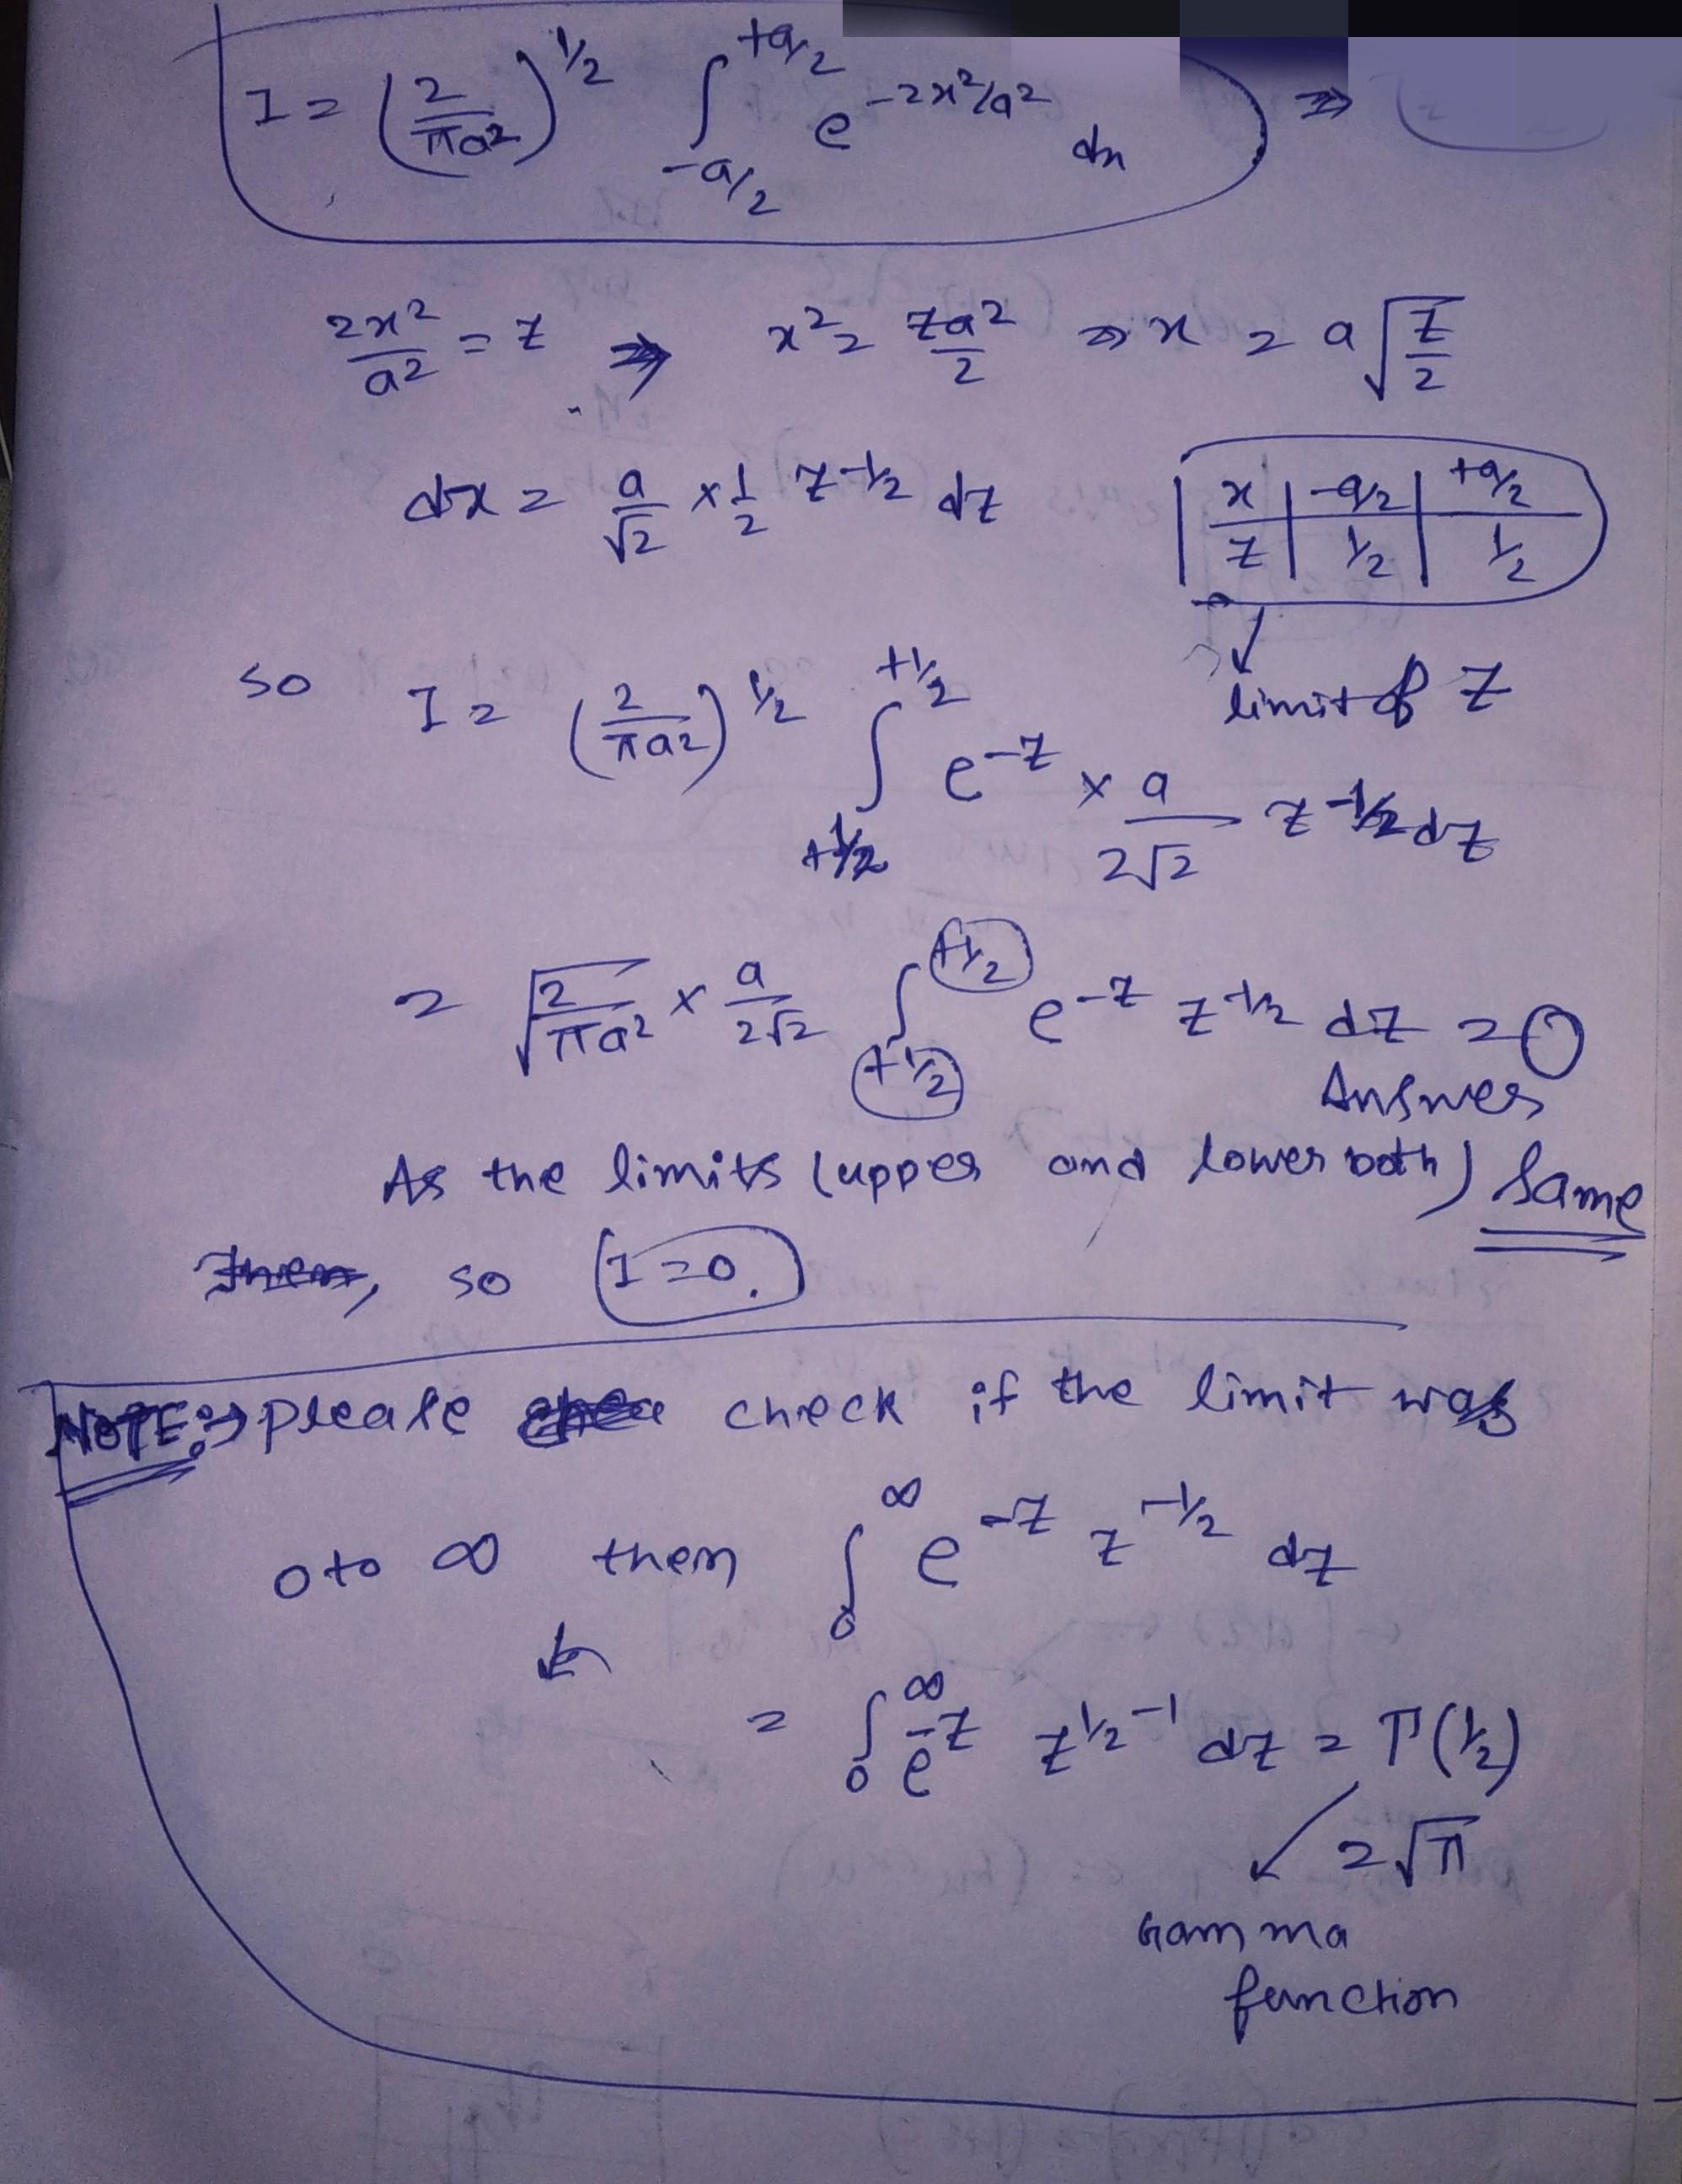 I = (2/πa²)^1/2 ∫_{-a/2}^{+a/2} e^{-2x²/a²} dx ⇒
2x²/a² = z ⇒ x² = za²/2 ⇒ x = a√(z/2)
dx = a/√2 × 1/2 z^{-1/2} dz
x | -a/2 | +a/2
z | 1/2 | 1/2
limit of z
so I = (2/πa²)^1/2 ∫_{+1/2}^{+1/2} e^{-z} × a/2√2 z^{-1/2} dz
= √(2/πa²) × a/2√2 ∫_{+1/2}^{+1/2} e^{-z} z^{-1/2} dz = 0
Answer
As the limits (upper and lower both) same
so I = 0.
NOTE:→ please check if the limit was
0 to ∞ then ∫_0^∞ e^{-z} z^{-1/2} dz
= ∫_0^∞ e^{-z} z^{1/2-1} dz = Γ(1/2)
= √π
Gamma
function